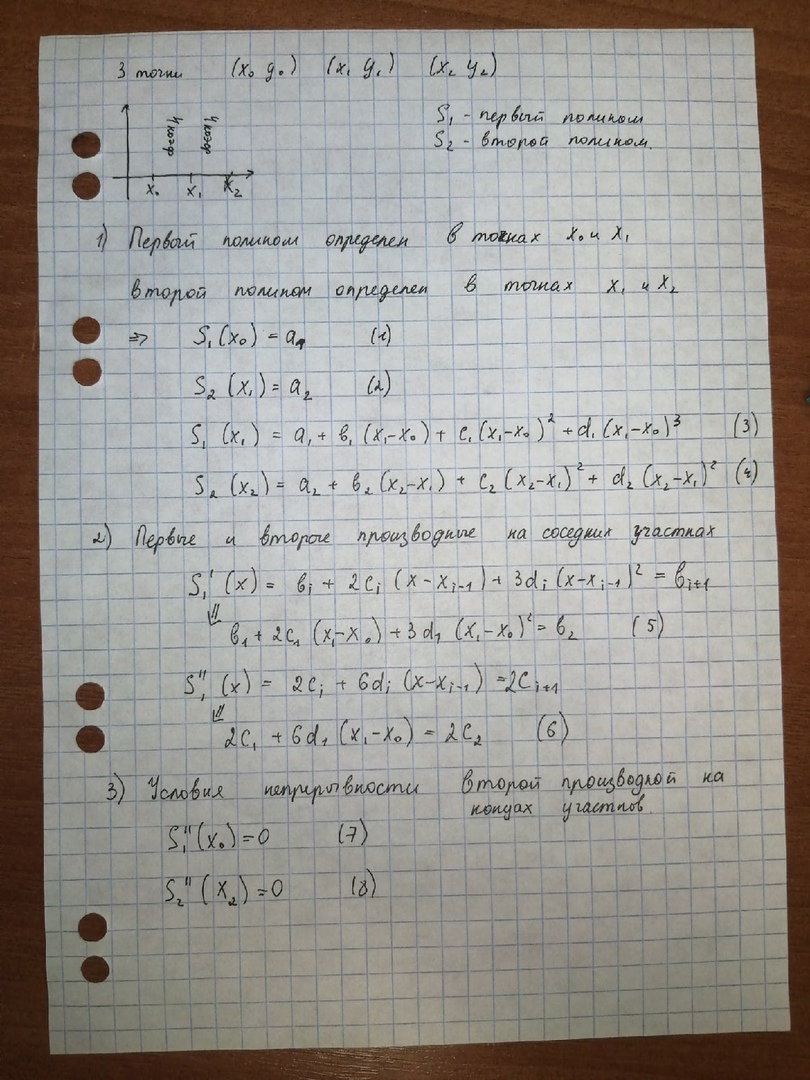 3 точки (x₀ y₀) (x₁ y₁) (x₂ y₂)
4 коэф
4 коэф
x₀ x₁ x₂
S₁ - первый полином
S₂ - второй полином.
1) Первый полином определен в точках x₀ и x₁
второй полином определен в точках x₁ и x₂
=> S₁(x₀) = a₁ (1)
S₂(x₁) = a₂ (2)
S₁(x₁) = a₁ + b₁(x₁-x₀) + c₁(x₁-x₀)² + d₁(x₁-x₀)³ (3)
S₂(x₂) = a₂ + b₂(x₂-x₁) + c₂(x₂-x₁)² + d₂(x₂-x₁)² (4)
2) Первые и вторые производные на соседних участках
Sᵢ'(x) = bᵢ + 2cᵢ(x-xᵢ₋₁) + 3dᵢ(x-xᵢ₋₁)² = bᵢ₊₁
⇓
b₁ + 2c₁(x₁-x₀) + 3d₁(x₁-x₀)² = b₂ (5)
Sᵢ''(x) = 2cᵢ + 6dᵢ(x-xᵢ₋₁) = 2cᵢ₊₁
⇓
2c₁ + 6d₁(x₁-x₀) = 2c₂ (6)
3) Условия неприрывности второй производной на
концах участков.
S₁''(x₀) = 0 (7)
S₂''(x₂) = 0 (8)